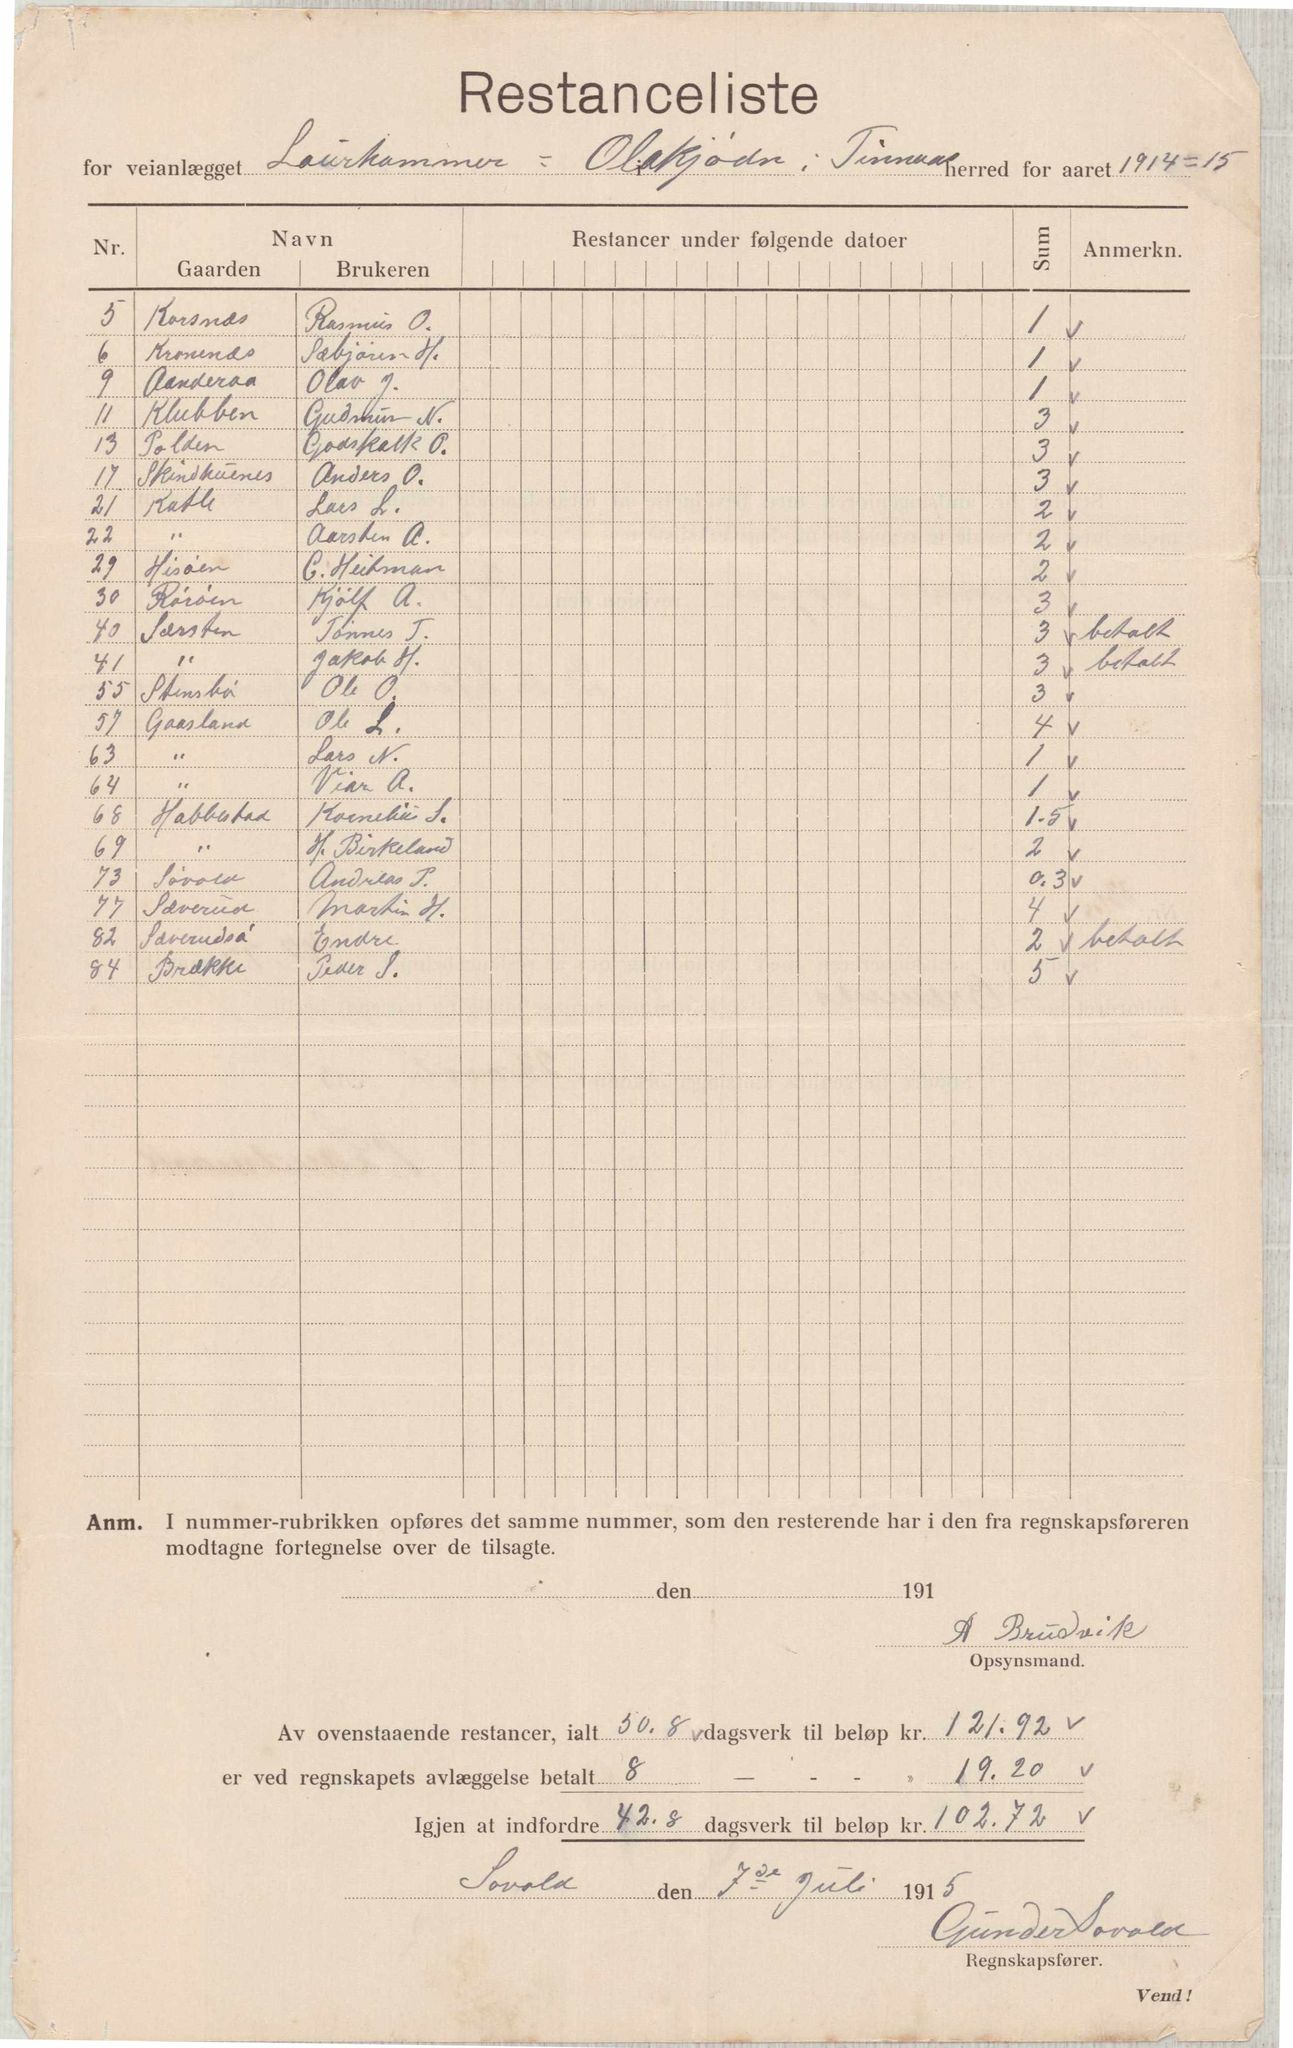 Restanceliste
for veianlægget Laurhammer = Olakjødn i Finnaas herred for aaret 1914=15
Nr. Navn Restancer under følgende datoer Sum Anmerkn.
Gaarden Brukeren
5 Korsnæs Rasmus O. 1 v
6 Kronenæs Sæbjørn H. 1 v
9 Aanderaa Olav J. 1 v
11 Klubben Gudmun N. 3 v
13 Polden Godskalk P. 3 v
17 Skindhuenes Anders O. 3 v
21 Katle Lars L. 2 v
22 " Aarsten A. 2 v
29 Hisøen C. Heitman 2 v
30 Rørøen Kjølf A. 3 v
40 Særsten Tønnes T. 3 v betalt
41 " Jakob H. 3 v betalt
55 Stensbø Ole O. 3 v
57 Gaasland Ole L. 4 v
63 " Lars N. 1 v
64 " Viar A. 1 v
68 Habbestad Kornelius S. 1.5 v
69 " H. Birkeland 2 v
73 Sovold Andreas P. 0.3 v
77 Sæverud Martin H. 4 v
82 Sæverudsø Endre 2 v betalt
84 Brække Peder S. 5 v
Anm. I nummer-rubrikken opføres det samme nummer, som den resterende har i den fra regnskapsføreren
modtagne fortegnelse over de tilsagte.
den 191
A Brudvik
Opsynsmand.
Av ovenstaaende restancer, ialt 50.8 v dagsverk til beløp kr. 121.92 v
er ved regnskapets avlæggelse betalt 8 — - - „ 19.20 v
Igjen at indfordre 42.8 dagsverk til beløp kr. 102.72 v
Sovold den 7de Juli 1915
Gunder Sovold
Regnskapsfører.
Vend!